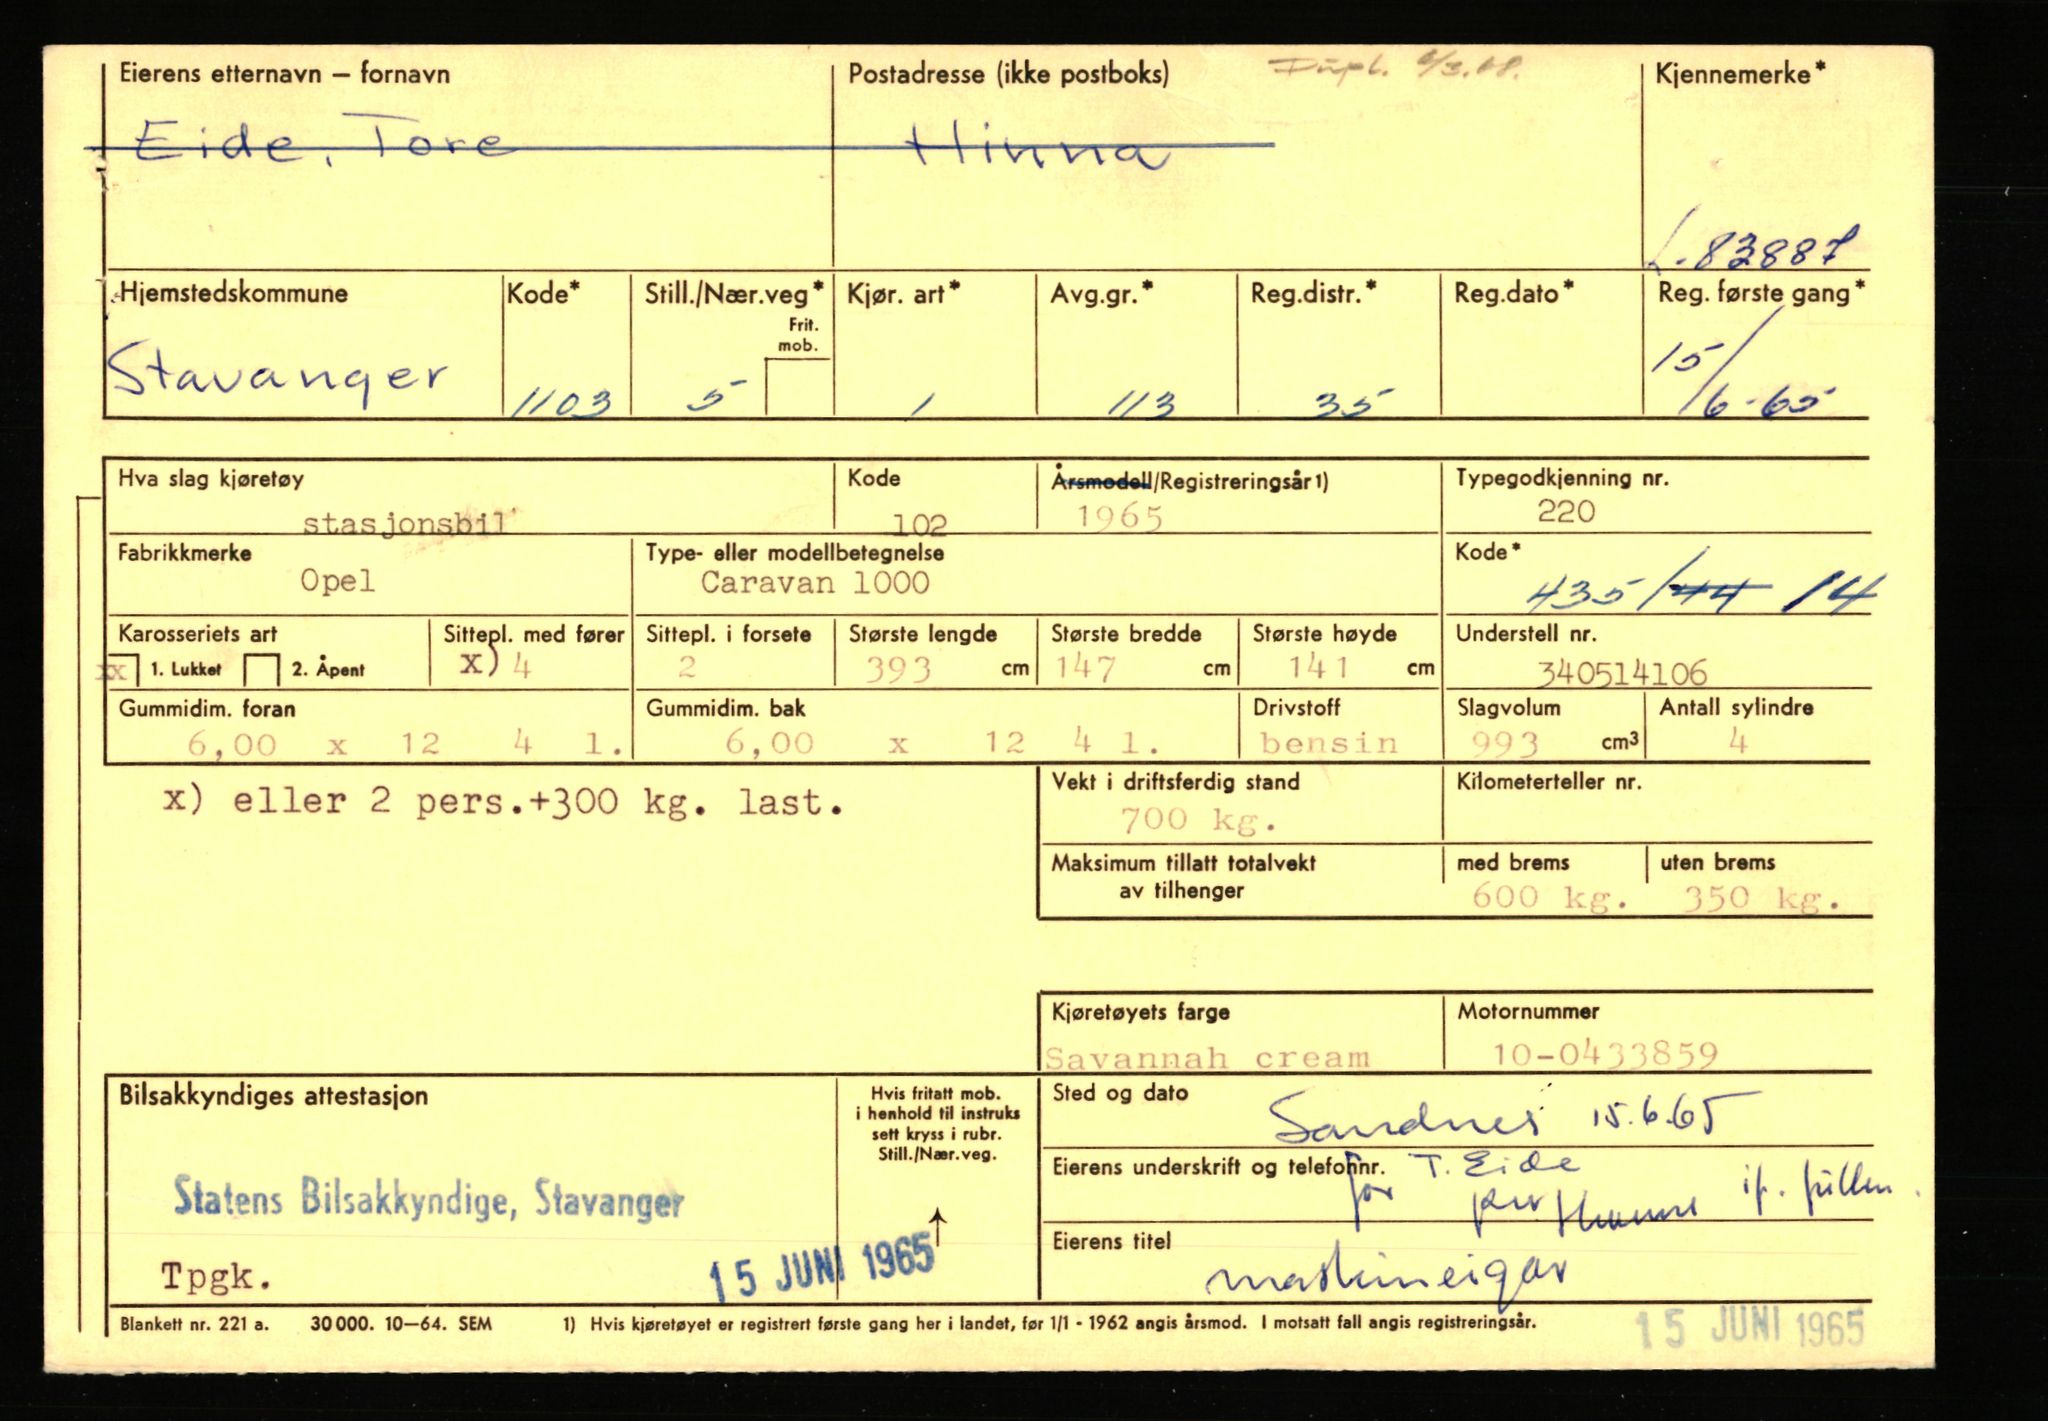 Eierens etternavn – fornavn Postadresse (ikke postboks) Dupl. 6/3.68. Kjennemerke*
Eide, Tore Hinna
L-83887
Hjemstedskommune Kode* Still./Nær.veg* Kjør. art* Avg.gr.* Reg.distr.* Reg.dato* Reg. første gang*
Frit.
mob.
Stavanger 1103 5 1 113 35 15/6-65
Hva slag kjøretøy Kode Årsmodell/Registreringsår1) Typegodkjenning nr.
stasjonsbil 102 1965 220
Fabrikkmerke Type- eller modellbetegnelse Kode*
Opel Caravan 1000 435/44 14
Karosseriets art Sittepl. med fører Sittepl. i forsete Største lengde Største bredde Største høyde Understell nr.
xx 1. Lukket 2. Åpent x) 4 2 393 cm 147 cm 141 cm 340514106
Gummidim. foran Gummidim. bak Drivstoff Slagvolum Antall sylindre
6,00 x 12 4 l. 6,00 x 12 4 l. bensin 993 cm3 4
x) eller 2 pers.+300 kg. last.
Vekt i driftsferdig stand Kilometerteller nr.
700 kg.
Maksimum tillatt totalvekt med brems uten brems
av tilhenger 600 kg. 350 kg.
Kjøretøyets farge Motornummer
Savannah cream 10-0433859
Bilsakkyndiges attestasjon
Hvis fritatt mob.
i henhold til instruks
sett kryss i rubr.
Still./Nær.veg.
Sted og dato
Sandnes 15.6.65
Eierens underskrift og telefonnr. T. Eide
for per
Statens Bilsakkyndige, Stavanger
Eierens titel
maskineigar
Tpgk. 15 JUNI 1965
Blankett nr. 221 a. 30 000. 10–64. SEM 1) Hvis kjøretøyet er registrert første gang her i landet, før 1/1 - 1962 angis årsmod. I motsatt fall angis registreringsår.
15 JUNI 1965